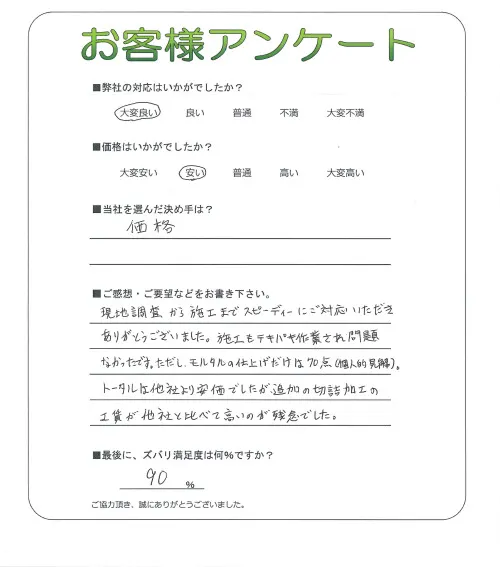 お客様アンケート
■弊社の対応はいかがでしたか？
大変良い 良い 普通 不満 大変不満
■価格はいかがでしたか？
大変安い 安い 普通 高い 大変高い
■当社を選んだ決め手は？
価格
■ご感想・ご要望などをお書き下さい。
現地調査から施工までスピーディーにご対応いただき
ありがとうございました。施工もテキパキ作業され問題
なかったです。ただし、モルタルの仕上げだけは70点(個人的見解)。
トータルは他社より安価でしたが追加の切詰加工の
工賃が他社と比べて高いのが残念でした。
■最後に、ズバリ満足度は何%ですか？
90 %
ご協力頂き、誠にありがとうございました。